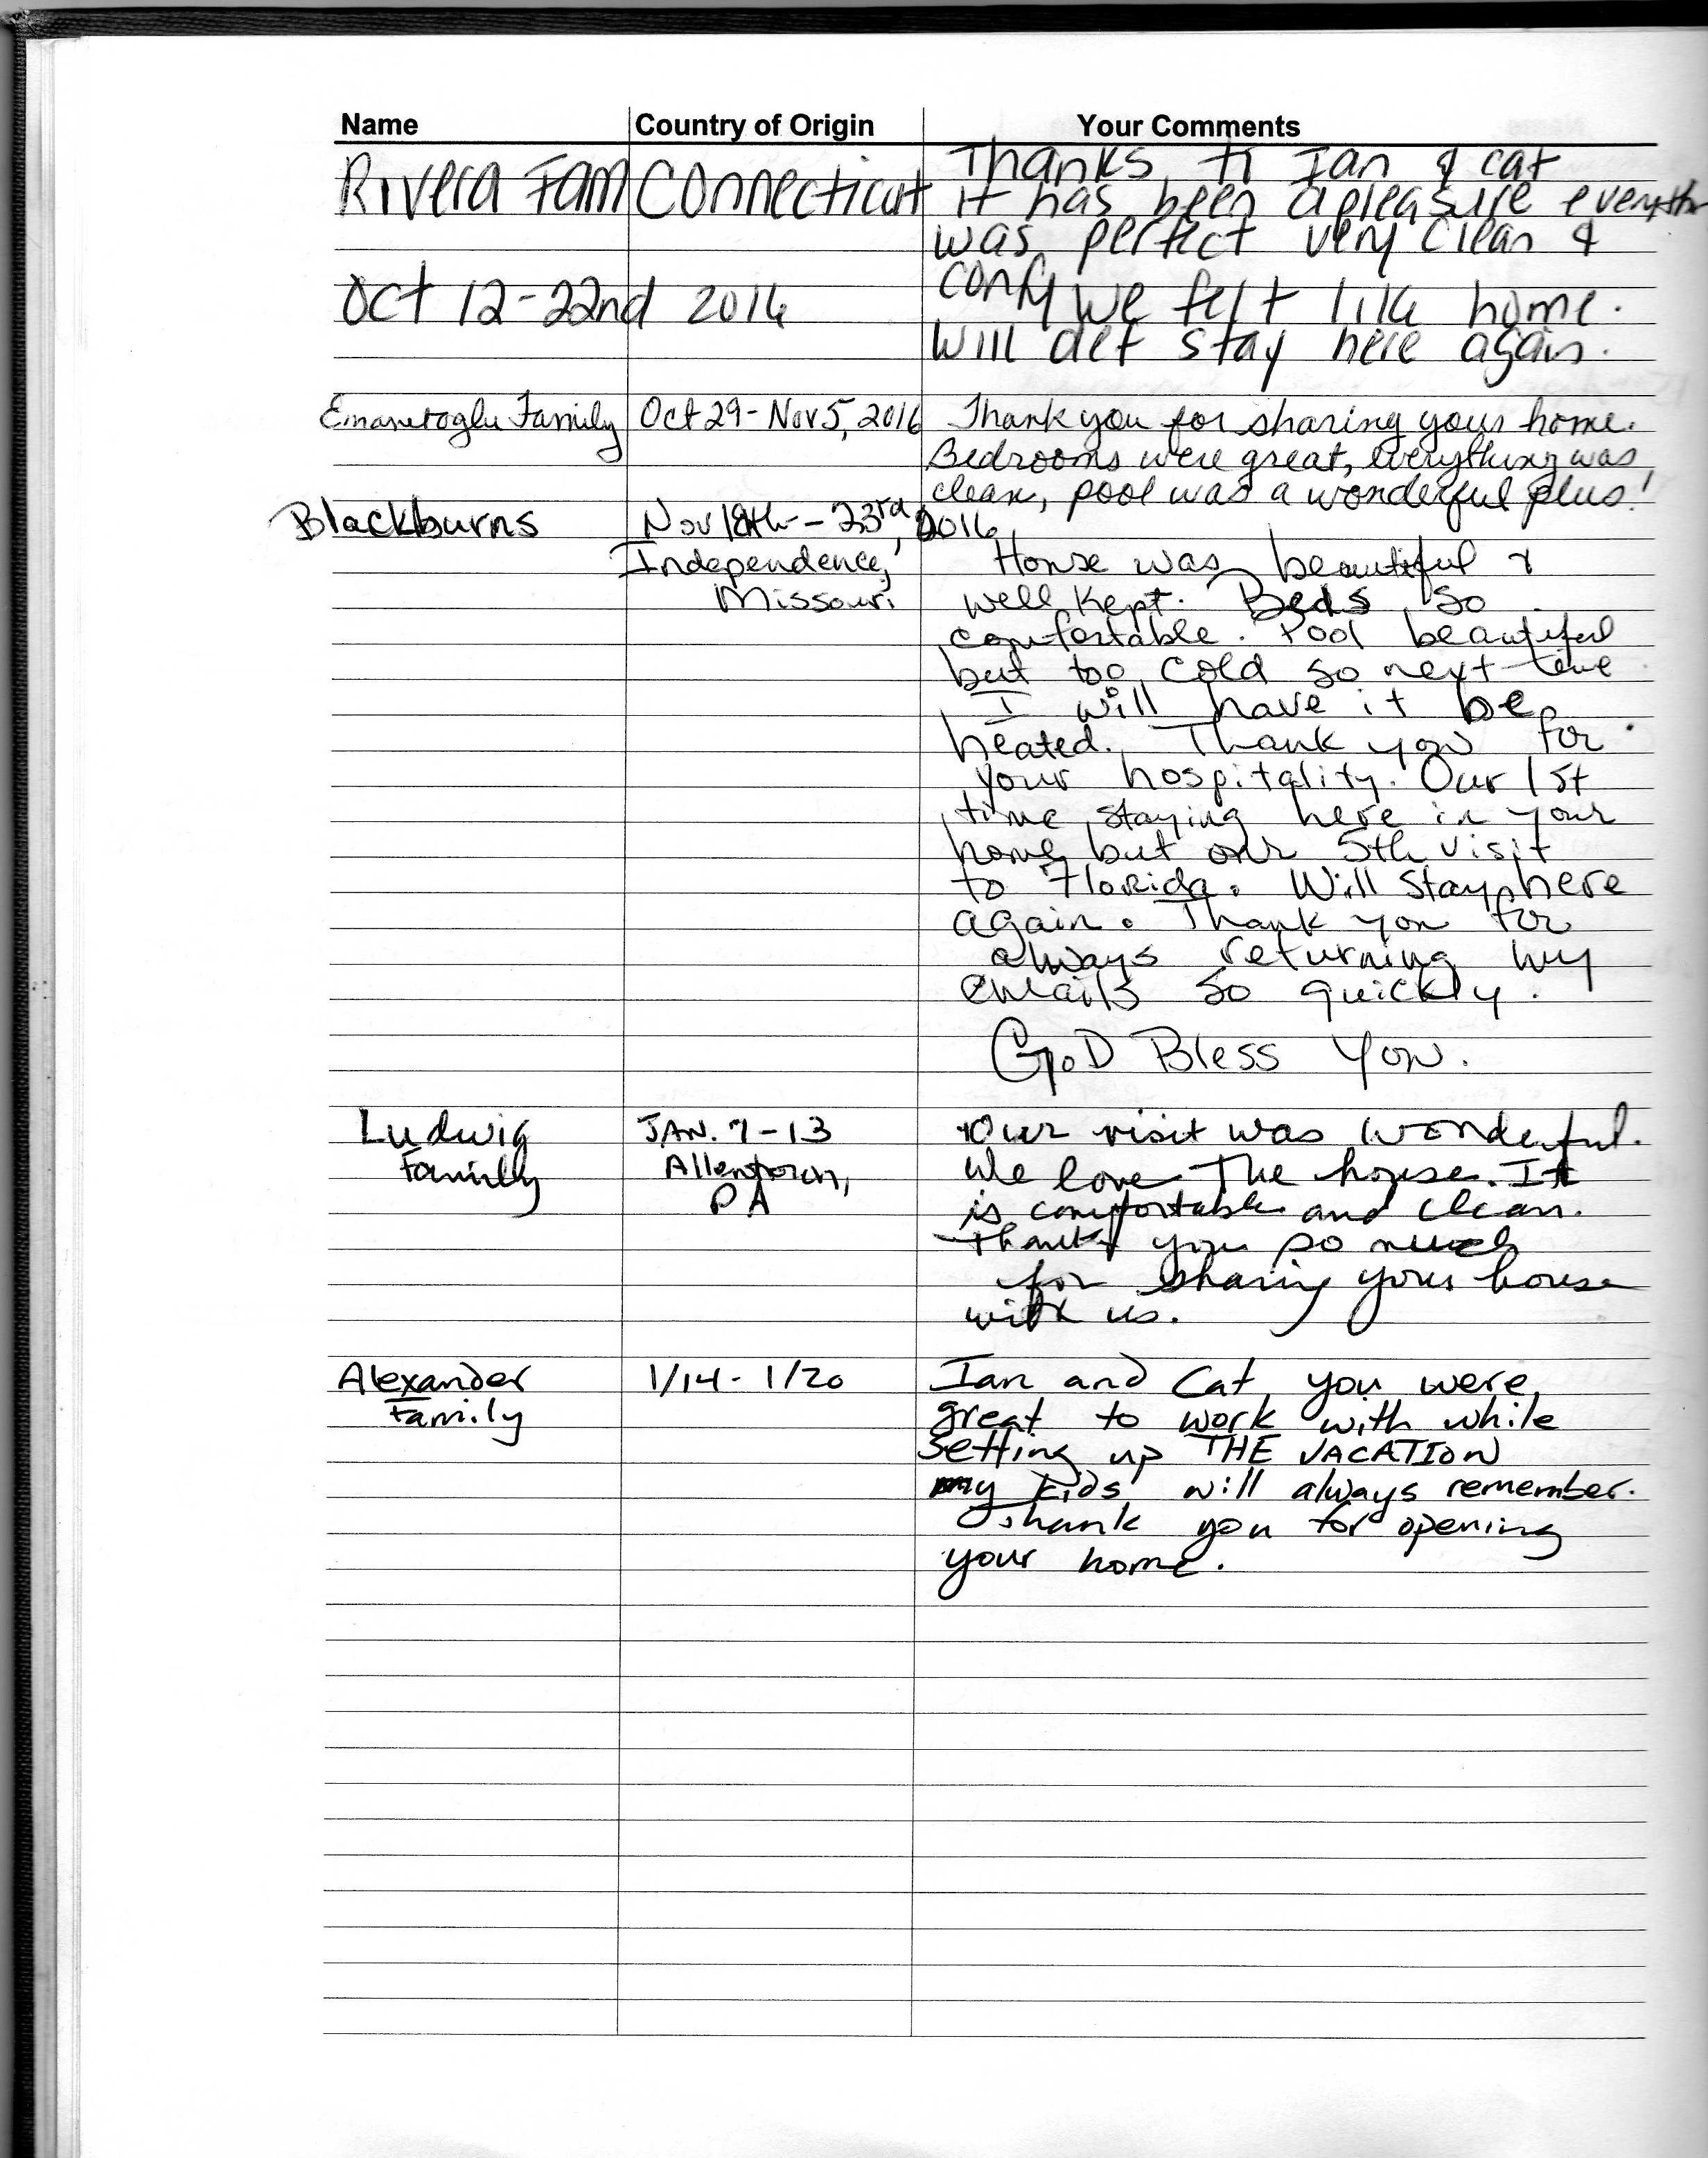 Name Country of Origin Your Comments
Rivera Fam Connecticut Thanks to Ian & Cat
it has been a pleasure everyth
was perfect very clean &
Oct 12-22nd 2016 comfy we felt like home.
Will def stay here again.
Family Oct 29 - Nov 5, 2016 Thank you for sharing your home.
Bedrooms were great, everything was
clean, pool was a wonderful plus!
Blackburns Nov 18th - 23rd, 2016
Independence, House was beautiful &
Missouri well kept. Beds so
comfortable. Pool beautiful
but too cold so next time
I will have it be
heated. Thank you for
your hospitality. Our 1st
time staying here in your
home but our 5th visit
to Florida. Will stay here
again. Thank you for
always returning my
emails so quickly.
GOD Bless You.
Ludwig JAN. 7-13 Our visit was wonderful.
Family Allentown, We love the house. It
PA is comfortable and clean.
Thank you so much
for sharing your house
with us.
Alexander 1/14 - 1/20 Ian and Cat, you were
Family great to work with while
setting up THE VACATION
my kids will always remember.
Thank you for opening
your home.